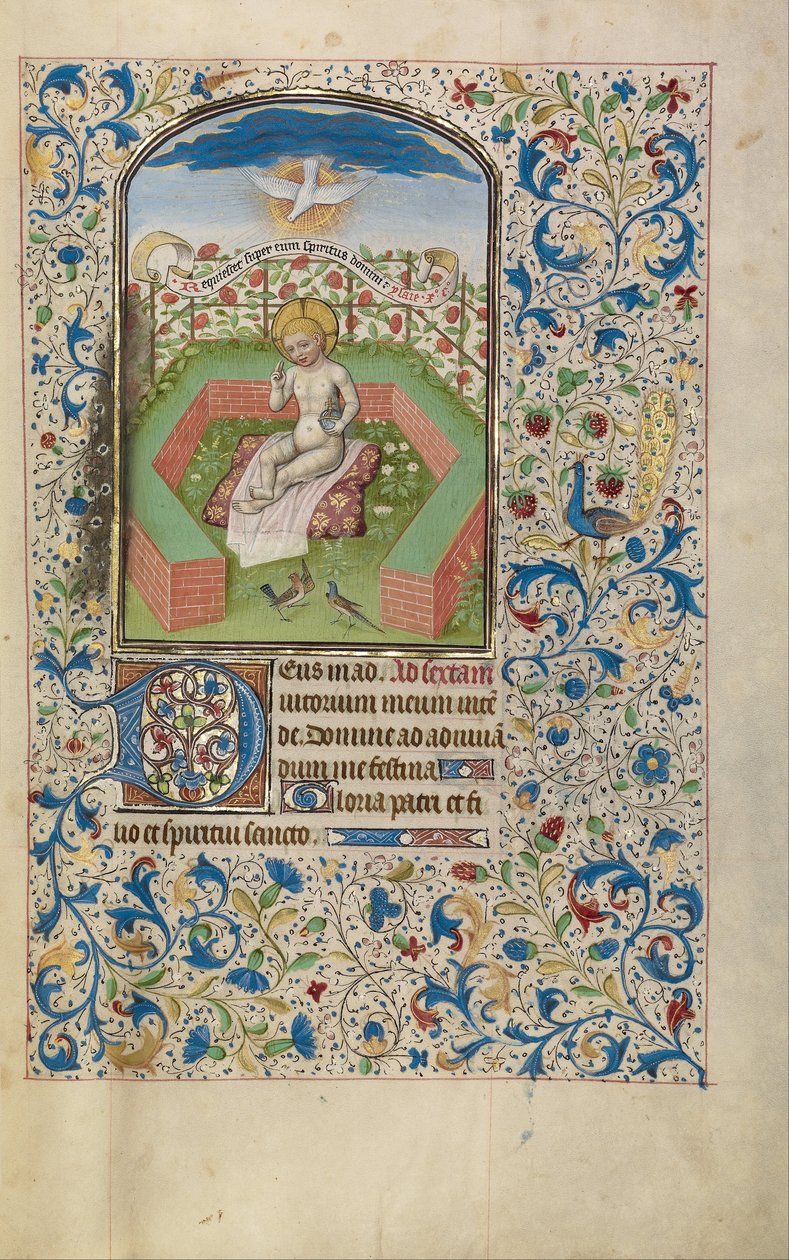 Requiescet super eum spiritus domini · ysaie · xi° c°
Eus in ad. Ad sextam
iutorium meum intē
de. Domine ad adiuuā
dum me festina
Gloria patri et fi
lio et spiritui sancto.